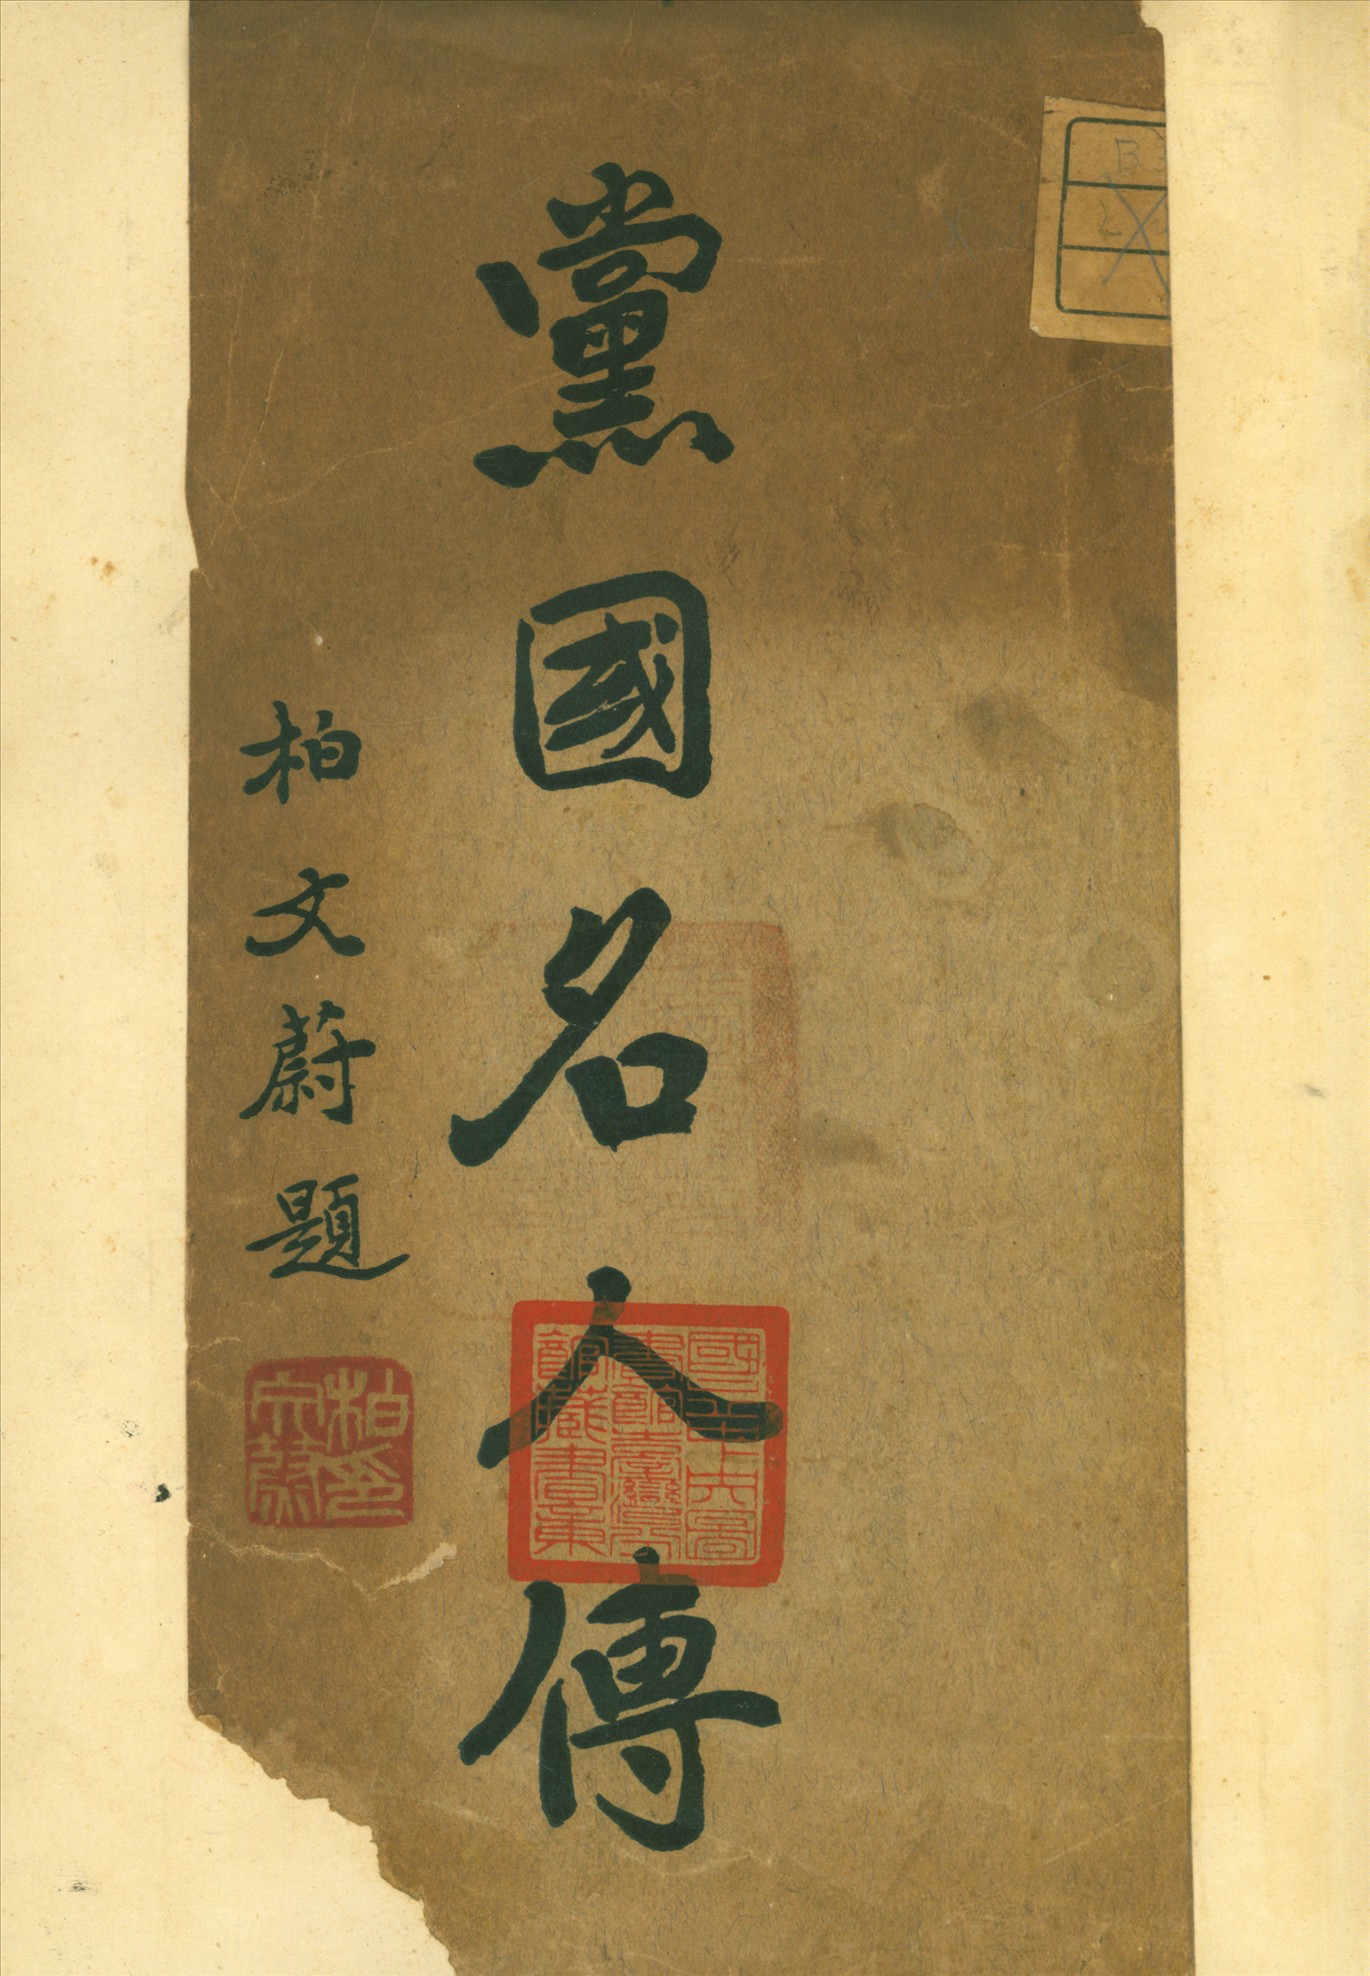 黨國名人傳
柏文蔚題
柏印
文蔚
國立中央圖
書館臺灣分
館藏書章
B